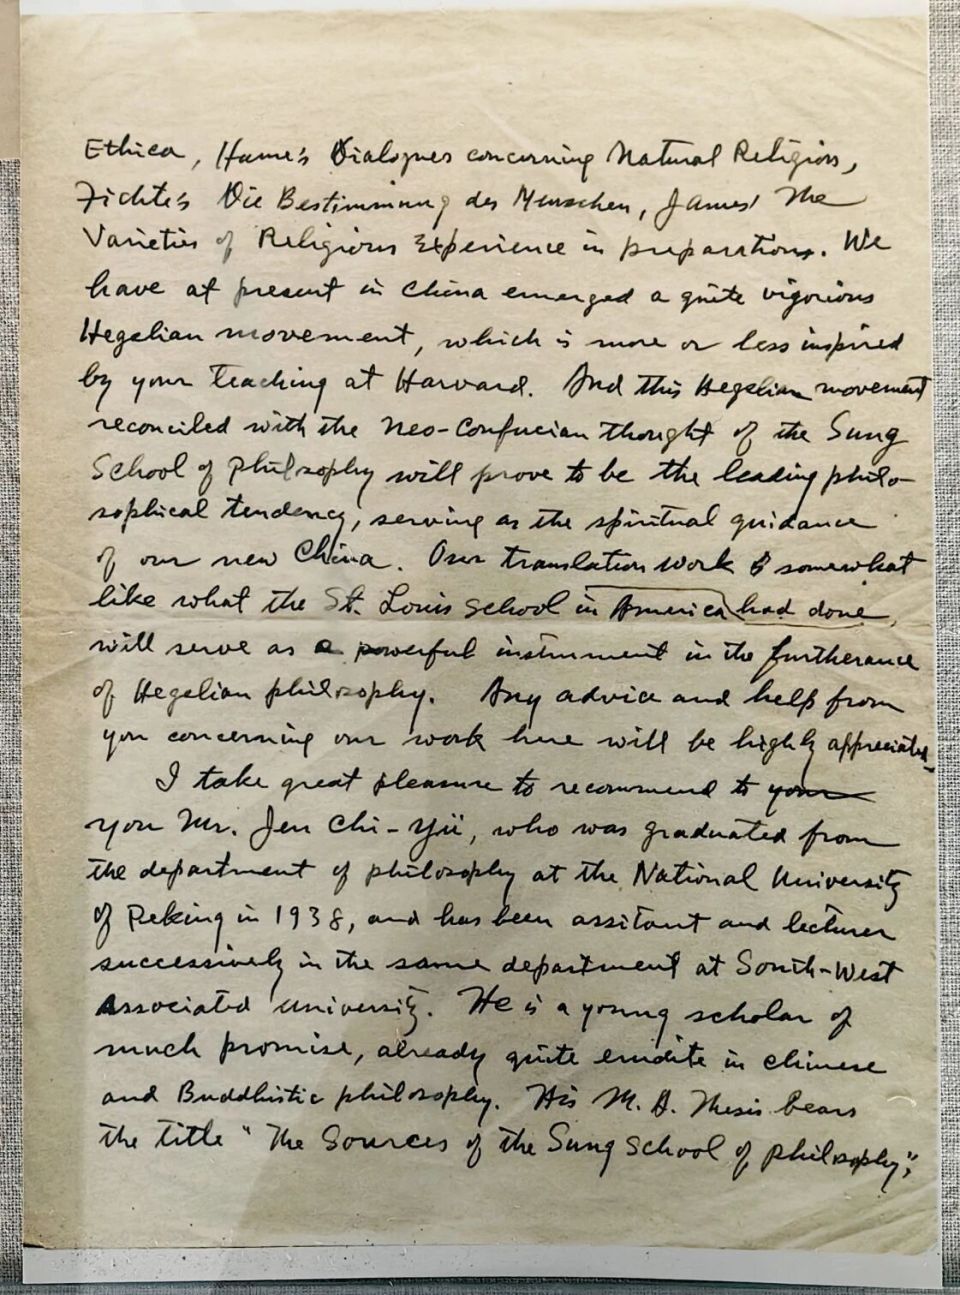 Ethica, Hume's Dialogues concerning Natural Religion,
Fichte's Die Bestimmung des Menschen, James' The
Varieties of Religious Experience in preparations. We
have at present in China emerged a quite vigorious
Hegelian movement, which is more or less inspired
by your teaching at Harvard. And this Hegelian movement
reconciled with the Neo-Confucian thought of the Sung
School of Philosophy will prove to be the leading philo-
sophical tendency, serving as the spiritual guidance
of our new China. Our translation work somewhat
like what the St. Louis School in America had done,
will serve as a powerful instrument in the furtherance
of Hegelian philosophy. Any advice and help from
you concerning our work here will be highly appreciated.
I take great pleasure to recommend to your
you Mr. Jen Chi-Yü, who was graduated from
the department of philosophy at the National University
of Peking in 1938, and has been assitant and lecturer
successively in the same department at South-West
Associated University. He is a young scholar of
much promise, already quite erudite in Chinese
and Buddhistic philosophy. His M.A. Thesis bears
the title "The Sources of the Sung School of Philosophy";